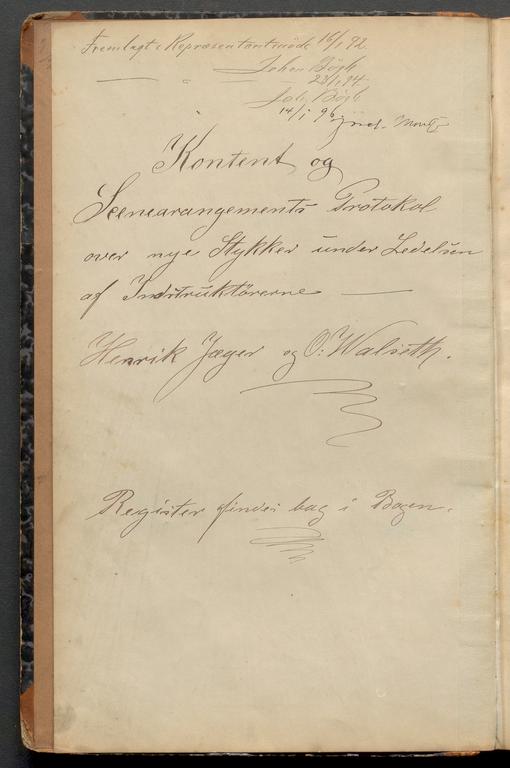 Fremlagt i Repræsentantmöde 16/1 92.
— " — Johan Bögh
23/1 94.
Joh. Bögh
14/1 96
Kontent og
Scenearangements Protokol
over nye Stykker under Ledelsen
af Instruktörerne —
Henrik Jæger og O: Walseth.
Register findes bag i Bogen.